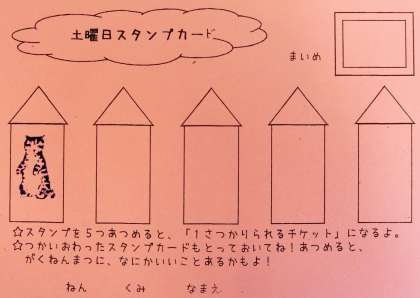 土曜日スタンプカード
まいめ
☆スタンプを5つあつめると、「1さつかりられるチケット」になるよ。
☆つかいおわったスタンプカードもとっておいてね!あつめると、
がくねんまつに、なにかいいことあるかもよ!
ねん くみ なまえ